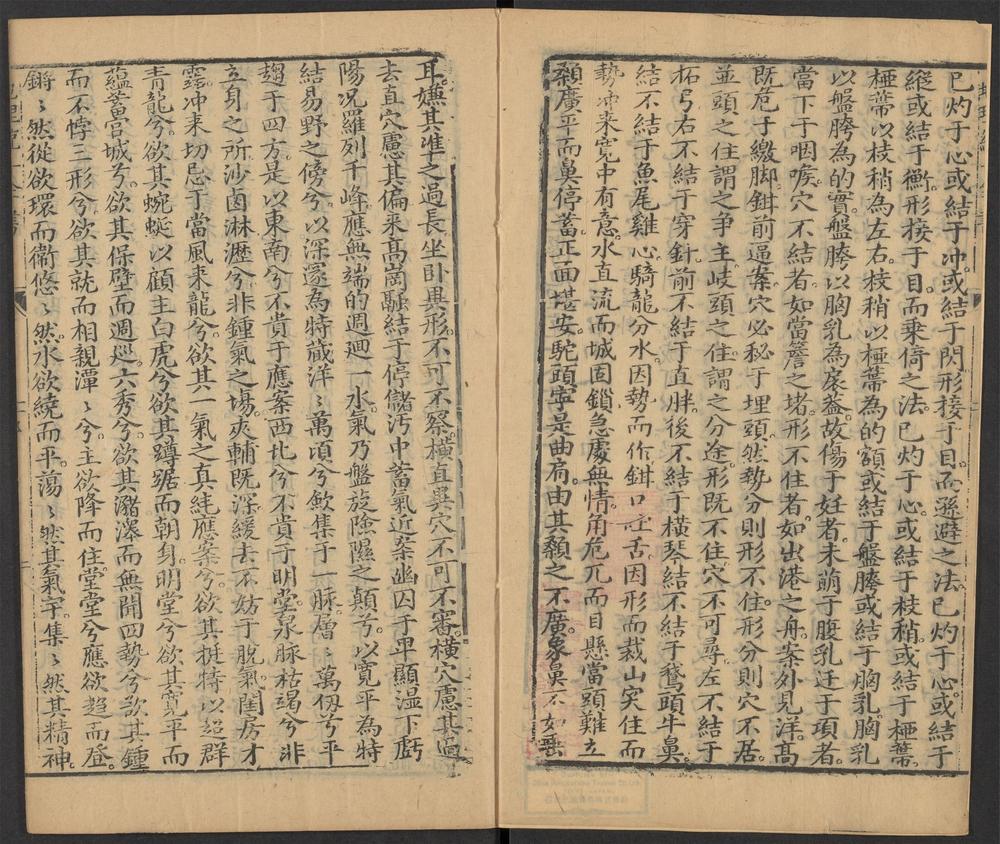 已灼于心或結于冲或結于閃形接于目而遜避之法已灼于心或結于
縱或結于衡形接于目而乘倚之法已灼于心或結于枝稍或結于極蒂
極蒂以枝稍為左右枝稍以極蒂為的額或結于盤膝或結于胸乳胸乳
以盤膀為的實盤膀以胸乳為扆葢故傷于妊者未萌于腹乳迂于項者
當下于咽喉穴不結者如當簷之堵形不住者如出港之舟案外見洋髙
既危于繳脚鉗前逼案穴必秘于埋頭然勢分則形不住形分則穴不居
並頭之住謂之争主岐頭之住謂之分途形既不住穴不可尋左不結于
柘弓右不結于穿針前不結于直胖後不結于橫琴結不結于鵞頭牛鼻
結不結于魚尾雞心騎龍分水因勢而作鉗口舌因形而裁山突住而
勢冲来寛中有意水直流而城固鎖急處無情角危兀而目懸當頭難立
顙廣平而鼻停蓄正面堪安駝頭寜是曲肩由其顙之不廣象鼻不如垂
耳嫌其准之過長坐卧異形不可不察橫直異穴不可不審橫穴慮其過
去直穴慮其偏来髙崗驟結于停儲汚中蓄氣近案幽囚于平顯湿下虧
陽况羅列千峰應無端的週廻一水氣乃盤旋險隰之顛兮以寛平為特
結易野之傍兮以深邃為特蔵洋〻萬頃兮歛集于一脉層〻萬仭兮平
趨于四方是以東南兮不貴于應案西北兮不貴于明堂泉脉枯竭兮非
立身之所沙鹵淋瀝兮非鍾氣之塲夾輔既深緩去不妨于脫氣閨房才
露冲来切忌于當風来龍兮欲其一氣之真純應案兮欲其挺特以超群
青龍兮欲其蜿蜒以顧主白虎兮欲其蹲踞而朝身明堂兮欲其寛平而
藴蓄宫城兮欲其保壁而週廵六秀兮欲其瀦澤而無開四勢兮欲其鍾
而不悖三形兮欲其就而相親潭〻兮主欲降而住堂堂兮應欲趨而登
鏘〻然從欲環而衞悠〻然水欲繞而平蕩〻然其氣宇集〻然其精神